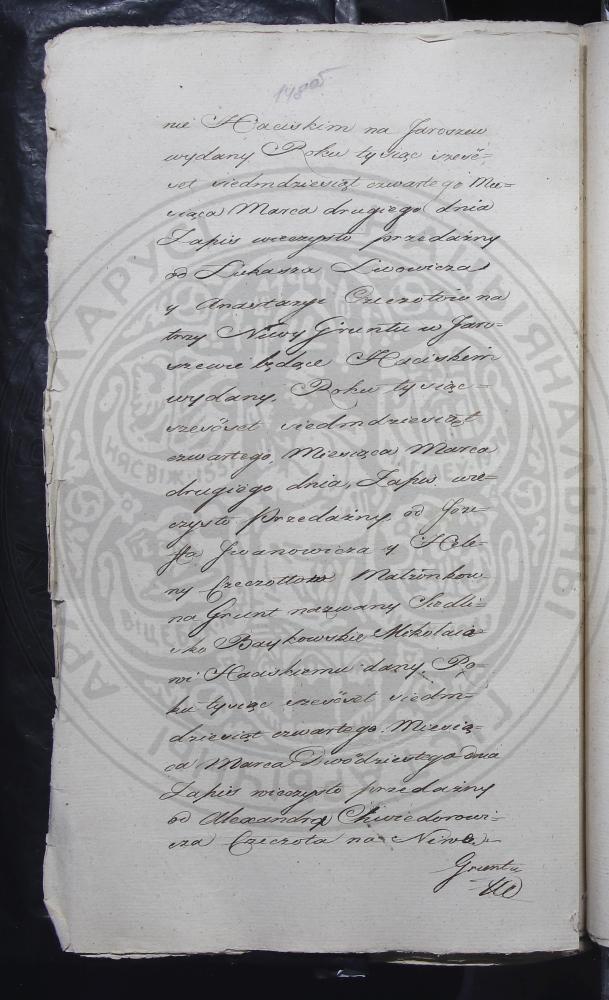 148 об.
nie Haciskim na Jaroszew
wydany Roku tysiąc sześć-
set siedmdziesiąt czwartego Mie-
siąca Marca drugiego dnia
Zapis wieczysto przedażny
od Łukasza Lwowicza
y Anastazyi Czeczotow na
trzy Niwy Gruntu w Jaro-
szewie będące Haciskim
wydany. Roku tysiąc
sześćset siedmdziesiąt
czwartego, Miesiąca Marca
drugiego dnia, Zapis wie-
czysto Przedażny od Józe-
fa Jwanowicza y Hele-
ny Czeczottow Małżonkow
na Grunt nazwany Siedli-
sko Baykowskie Mikołaio-
wi Haciskiemu dany Ro-
ku tysiąc sześćset siedm-
dziesiąt czwartego. Miesią-
ca Marca Dwódziestego dnia
Zapis wieczysto przedażny
od Alexandra Chwiedorowi-
cza Czeczota na Niwe
Gruntu